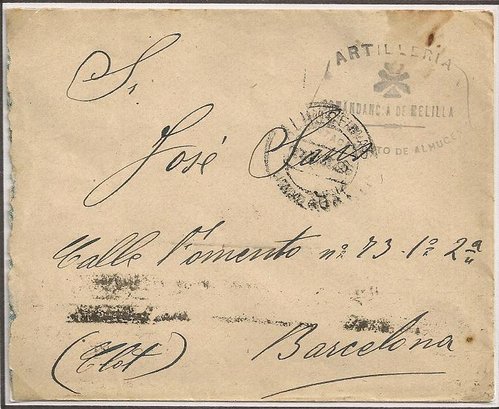 ARTILLERÍA
COMANDANCIA DE MELILLA
DE ALMUCE
S.
José
Calle Fomento nº 73-1º 2ª
(Clot) Barcelona